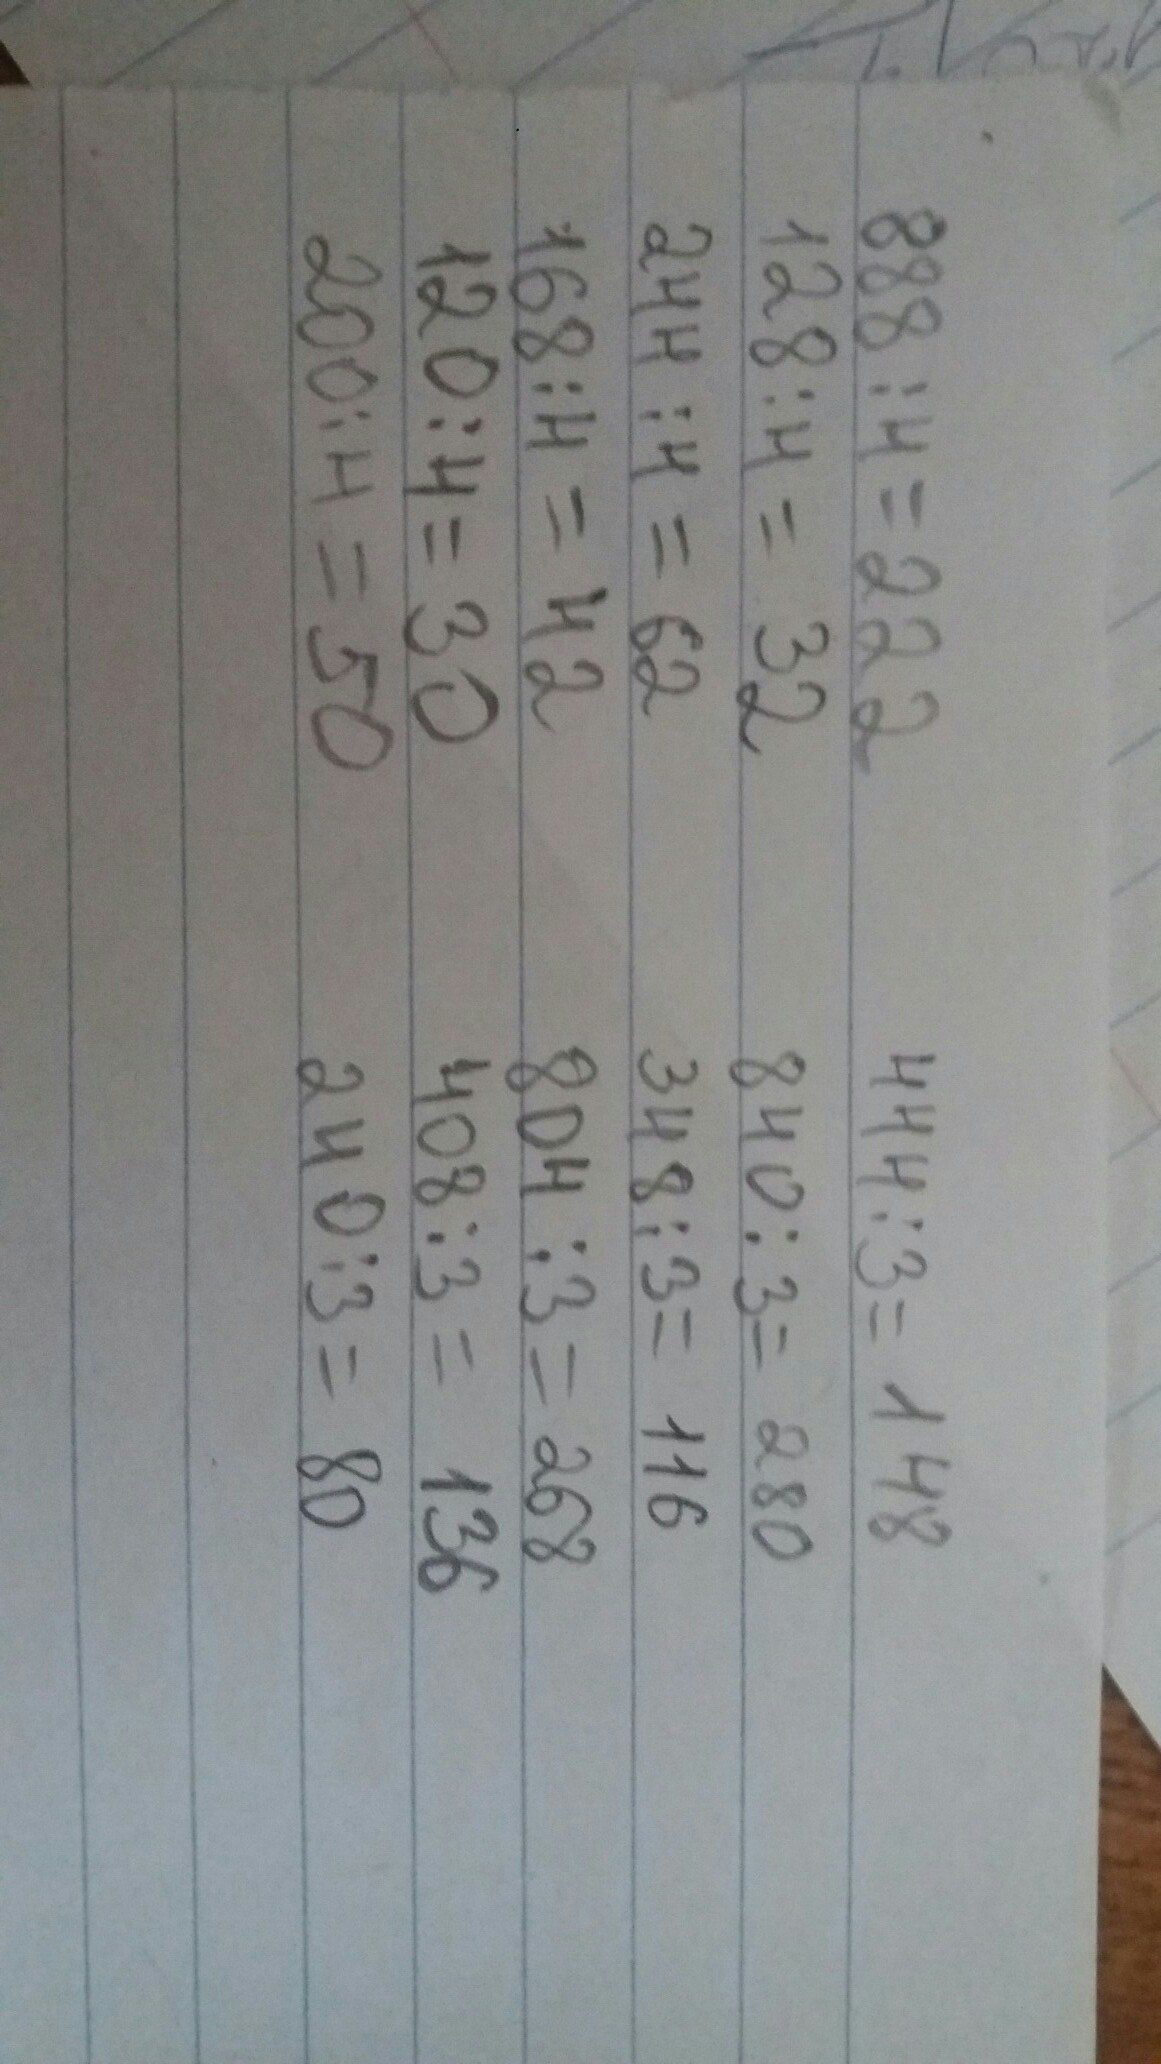 888:4=222 444:3=148
128:4=32 840:3=280
244:4=62 348:3=116
168:4=42 804:3=268
120:4=30 408:3=136
200:4=50 240:3=80